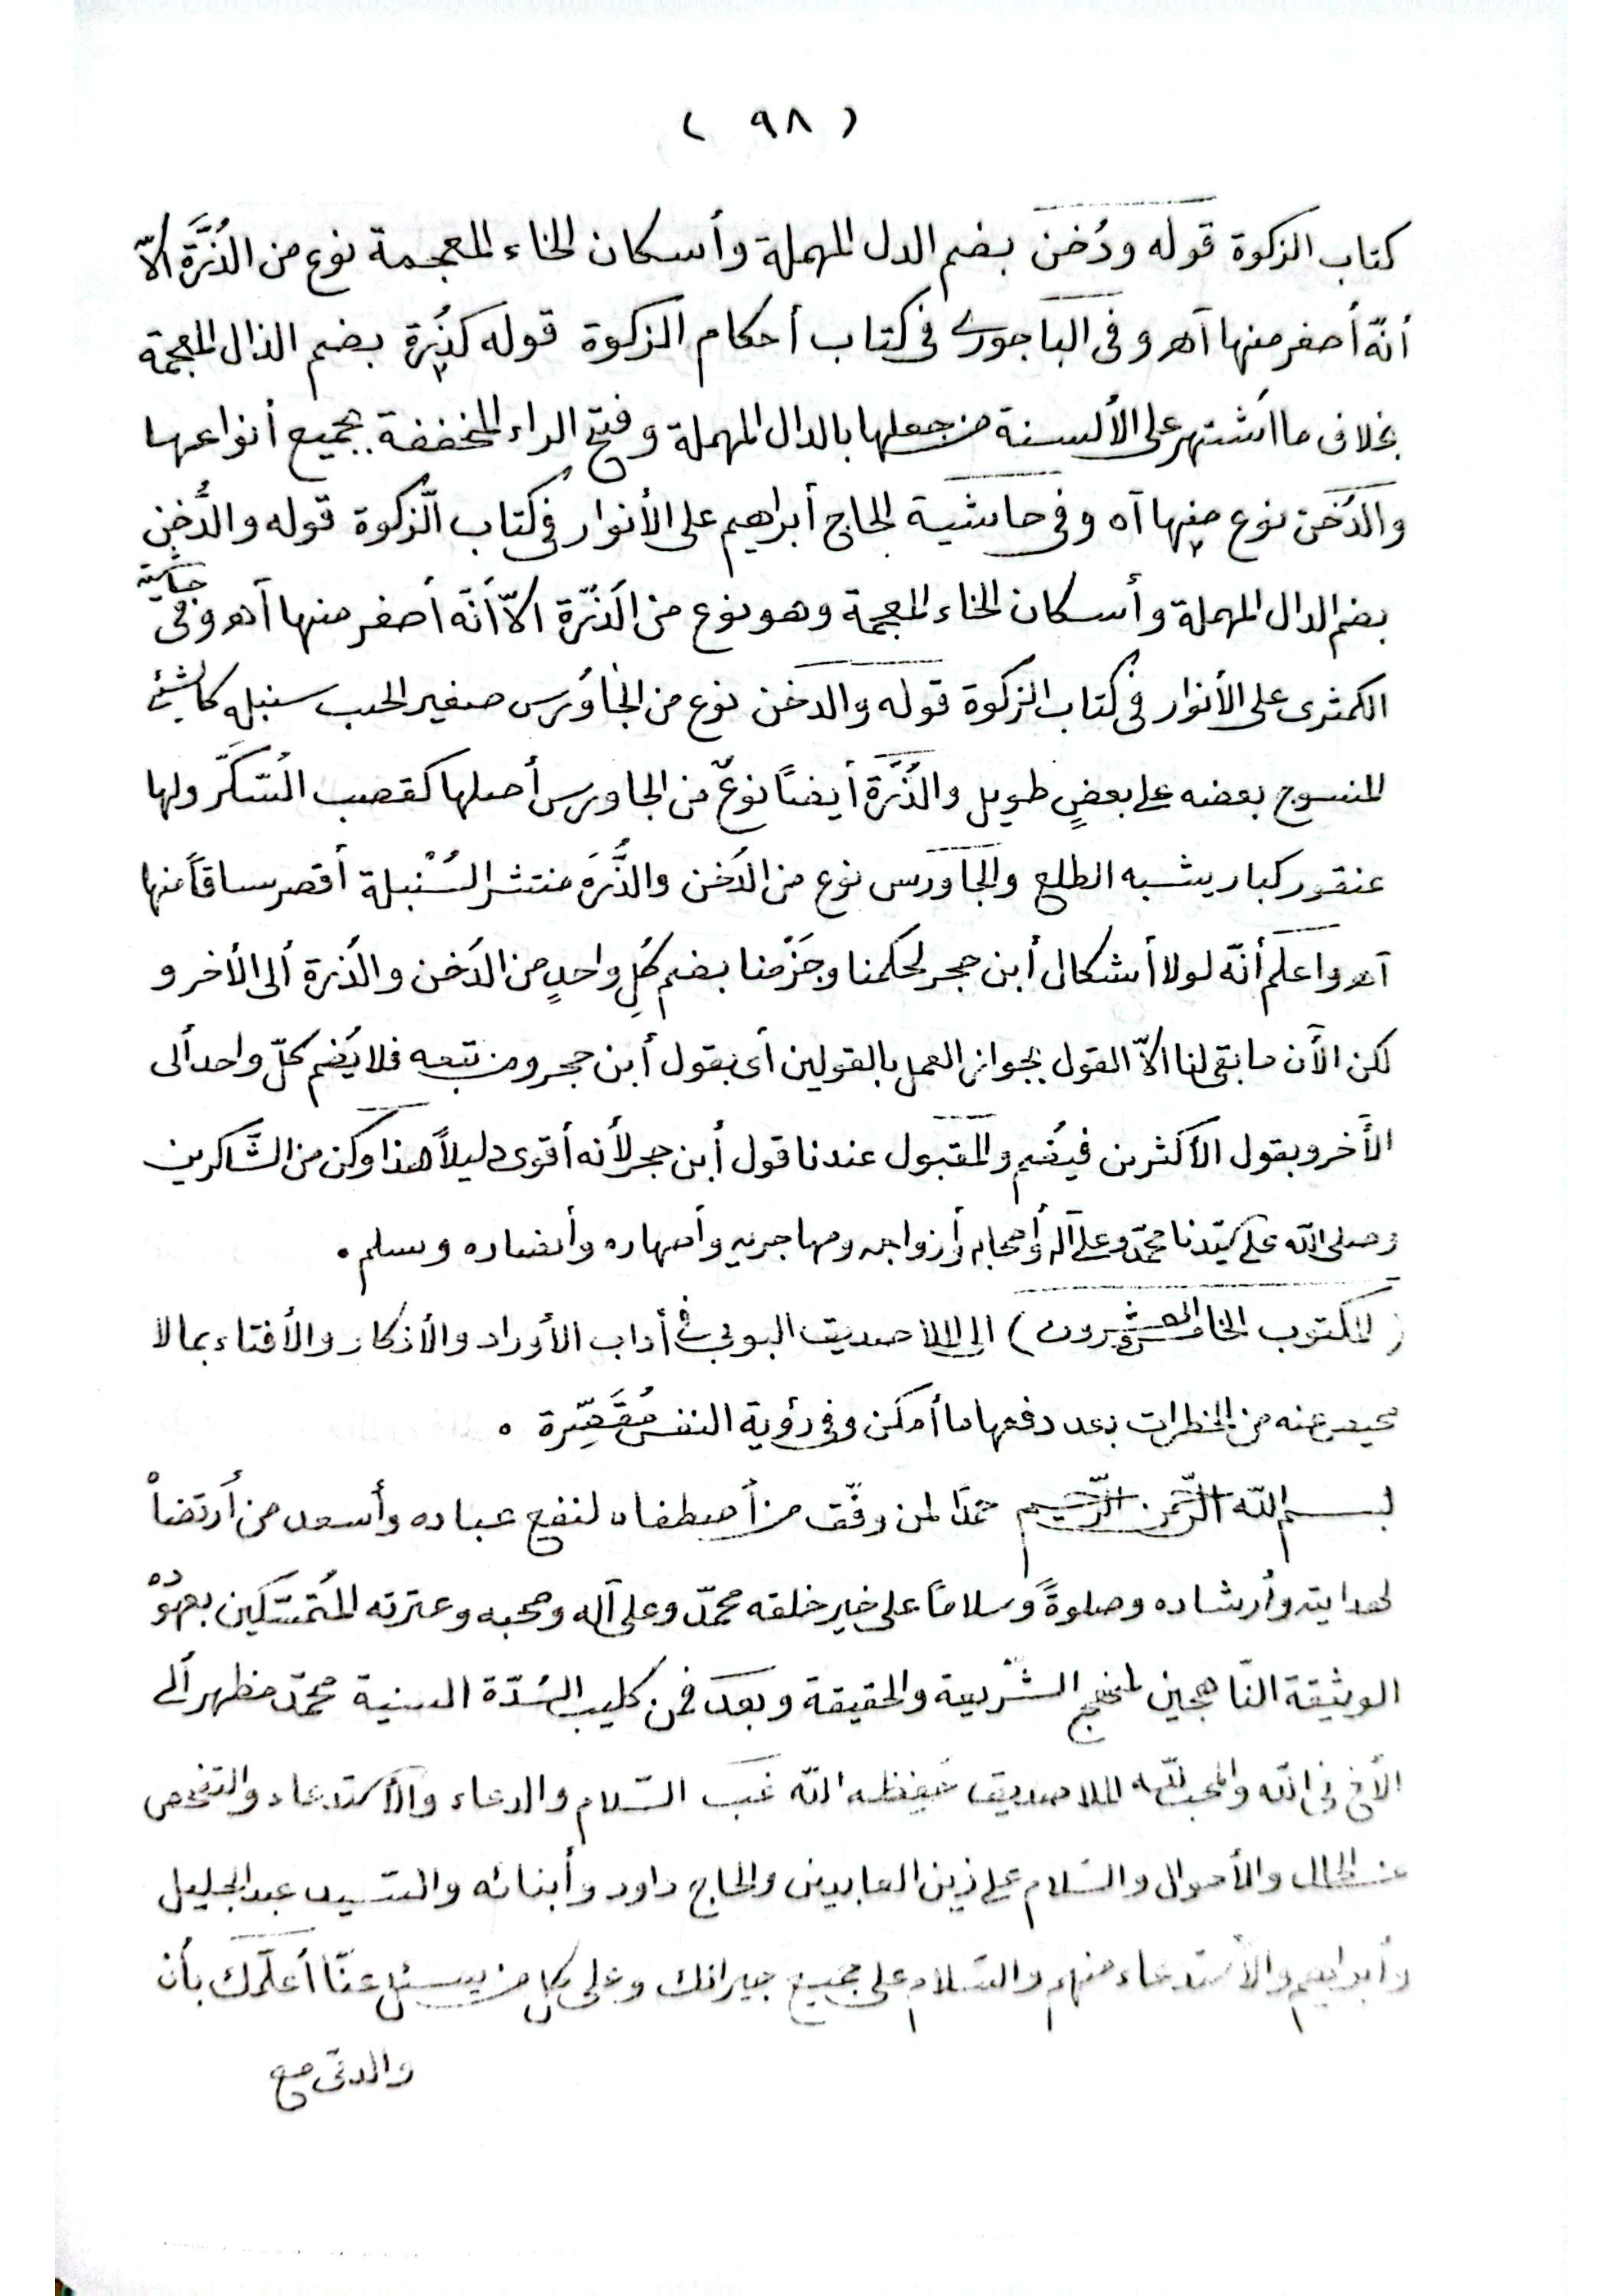 ( ٩٨ )
كتاب الزكوة قوله ودُخن بضم الدل المهملة وأسكان الخاء المعجمة نوع من الذُرَّة الاّ
أنّه أصغر منها آهـ وفى الباجورى فى كتاب أحكام الزكوة قوله كذُرة بضم الذال المعجمة
بخلاف ما أشتهر على الألسنة من جعلها بالدال المهملة وفتح الراء المخففة بجميع أنواعها
والدُخن نوع منها آه وفى حاشية الحاج أبراهيم على الأنوار فى كتاب الزّكوة قوله والدُّخن
بضم الدال المهملة وأسكان الخاء المعجمة وهو نوع من الذرّة الاّ أنّه أصغر منها آهـ وفى حاشية
الكمثرى على الأنوار فى كتاب الزكوة قوله والدخن نوع من الجاوُرس صغير الحب سنبله كالشئ
المنسوج بعضه على بعضٍ طويل والذُرَّة أيضاً نوعٌ من الجاورس أصلها كقصب السُكَّر ولها
عنقود كبار يشبه الطلع والجاورس نوع من الدُخن والذُّرَة منتشر السُنْبلة أقصر ساقاً منها
آهـ واعلم أنّه لولا أشكال أبن حجر لحكمنا وجَزْمنا بضم كُلِ واحدٍ من الدُخن والذُرة ألى الأخر و
لكن الأن ما بقى لنا الاّ القول بجواز العمل بالقولين أى بقول أبن حجر ومن تبعه فلا يُضم كلّ واحد ألى
الأخر وبقول الأكثرين فيُضم والمقبول عندنا قول أبن حجر لأنه أقوى دليلاً هذا وكن من الشَّاكرين
وصلى الله على سيّدنا محمّد وعلى آله وأصحابه وأزواجه ومهاجريه وأصهاره وأنصاره وسلم .
( المكتوب الخامس والعشرون ) الى الملا صديق البوبى فى أداب الأوراد والأذكار والأفتاء بما لا
محيص عنه من الخطرات بعد دفعها ما أمكن وفى رؤية النفس مُقَصِّرة .
بسم الله الرّحمن الرّحيم حمدًا لمن وفّق من أصطفاه لنفع عباده وأسعد من أرتضاْ
لهدايته وأرشاده وصلوةً وسلامًا على خير خلقه محمّد وعلى آله وصحبه وعترته المُتمسّكين بعهوُدْه
الوثيقة النّاهجين لمنهج الشّريعة والحقيقة وبعد فمن كليب السُدّة السنية محمّد مظهر ألى
الأخ فى الله والمحب لله الملا صديق حفظه الله غب السّلام والدعاء والأستدعاء والتفحص
عن الحال والأحوال والسّلام على زين العابدين والحاج داود وأبنائه والسّيد عبد الجليل
وأبراهيم والأستدعاء منهم والسّلام على جميع جيرانك وعلى كل من يسئل عنّا أعلّمك بأن
والدتى مع